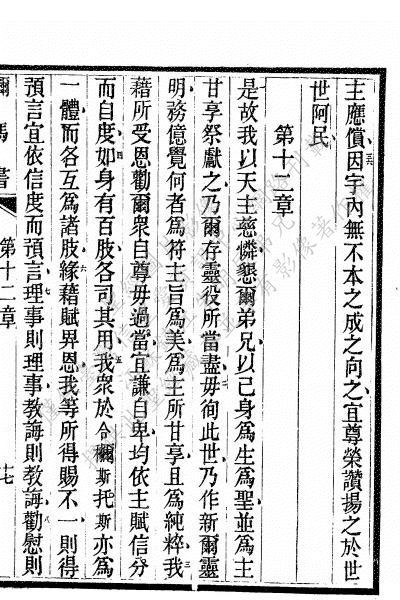 主應償因宇內無不本之成之向之宜尊榮讚揚之於世
世阿民
第十二章
是故我以天主慈憐懇爾弟兄以己身為生為聖並為主
甘享祭獻之乃爾存靈役所當盡毋徇此世乃作新爾靈
明務億覺何者為符主旨為美為主所甘享且為純粹我
藉所受恩勸爾眾自尊毋過當宜謙自卑均依主賦信分
而自度如身有百肢各司其用我眾於合爾斯托斯亦為
一體而各互為諸肢緣藉賦界恩我等所得賜不一則得
預言宜依信度而預言理事則理事教誨則教誨勸慰則
爾馬書
第十二章
十七